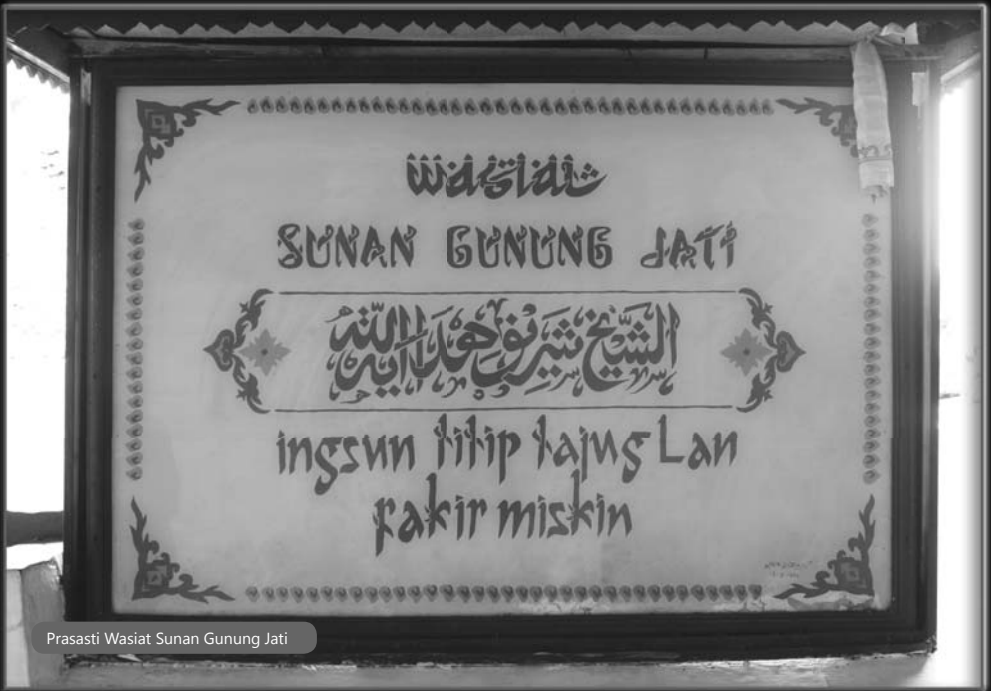 wasiat
SUNAN GUNUNG JATI
الشيخ شريف هداية الله
ingsun titip tajug Lan
fakir miskin
Prasasti Wasiat Sunan Gunung Jati